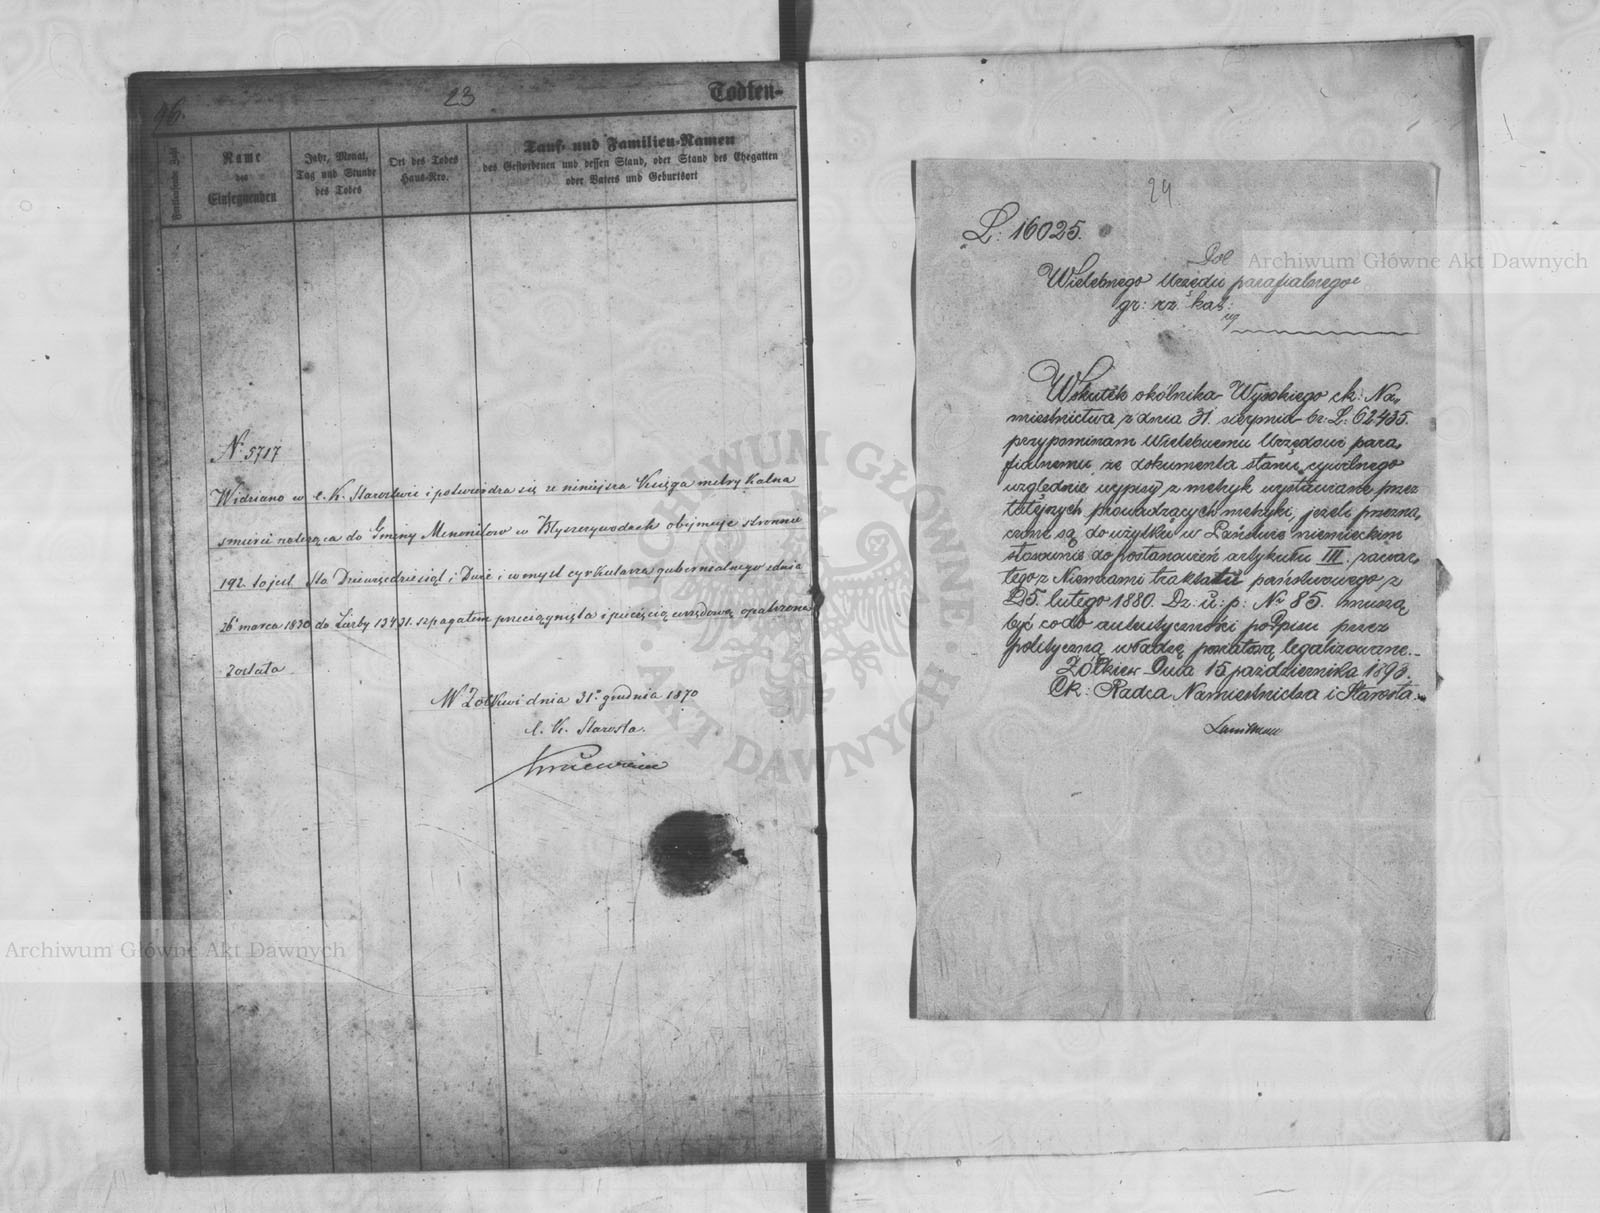 96.
23
Todten-
Fortlaufende Zahl
Name
des
Einsegnenden
Jahr, Monat,
Tag und Stunde
des Todes
Ort des Todes
Haus-Nro.
Tauf- und Familien-Namen
des Gestorbenen und dessen Stand, oder Stand des Ehegatten
oder Vaters und Geburtsort
N: 5717
Widziano w c. K. Starostwie i potwierdza się ze niniejsza Księga metrykalna
śmierci należąca do Gminy Menonitow w obijmuje stronnic
192. to jest Sto Dziewiędziesiąt i Dwie i w mysl cyrkularza gubernialnego z dnia
26 marca 1830 do Liczby 13431. szpagatem przeciągnięta i pieczęcią urzędową opatrzona
została
W Zołkwi dnia 31o grudnia 1870
C. K. Starosta.
29.
L: 16025.
Do
Wielebnego Urzędu parafialnego
gr: rz: kat:
w
Wskutek okólnika Wysokiego ck: Na-
miestnictwa z dnia 31. sierpnia br: L: 62435.
przypominam Wielebnemu Urzędowi para-
fialnemu, że dokumenta stanu cywilnego
względnie wypisy z metryk wystawiane przez
tutejszych prowadzących metryki, jeżeli przezna-
czone są do użytku w Państwie niemieckim
stosownie do postanowień artykułu III. zawar-
tego z Niemcami traktatu państwowego z
25. lutego 1880. Dz. u: p: Nr 85. muszą
być co do autentyczności podpisu przez
polityczną władzę powiatową legalizowane.
Żółkiew dnia 15 października 1893.
Ck: Radca Namiestnictwa i Starosta.
Archiwum Główne Akt Dawnych
Archiwum Główne Akt Dawnych
ARCHIWUM GŁÓWNE AKT DAWNYCH